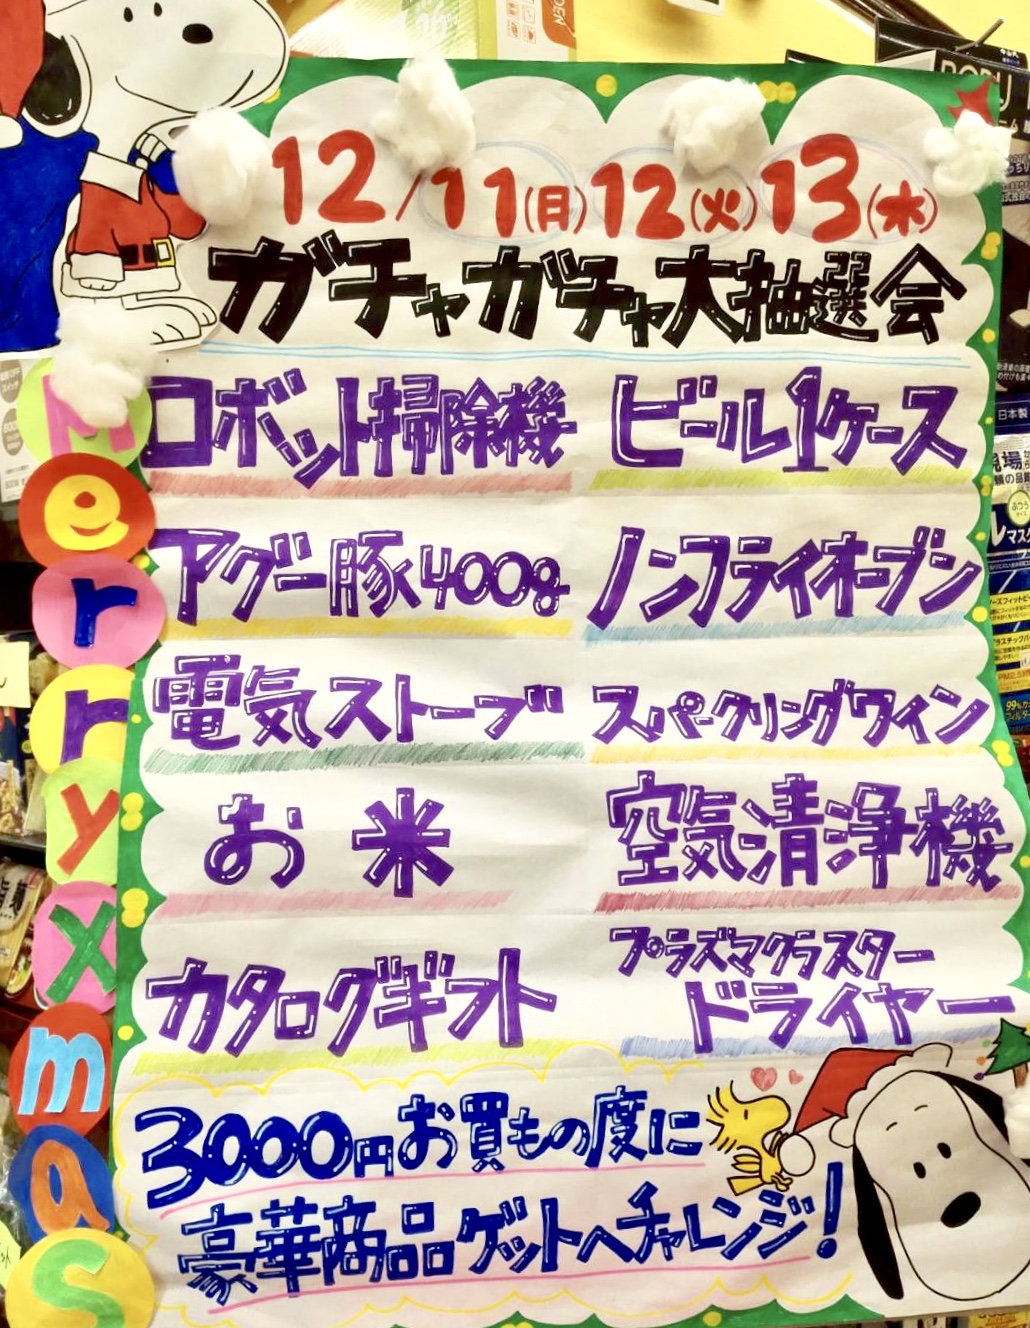 12/11(月)12(火)13(水)
ガチャガチャ大抽選会
ロボット掃除機 ビール1ケース
アグー豚400g ノンフライオーブン
電気ストーブ スパークリングワイン
お米 空気清浄機
カタログギフト プラズマクラスター
ドライヤー
3000円お買もの度に
豪華商品ゲットへチャレンジ!
Merryxmas
日本製